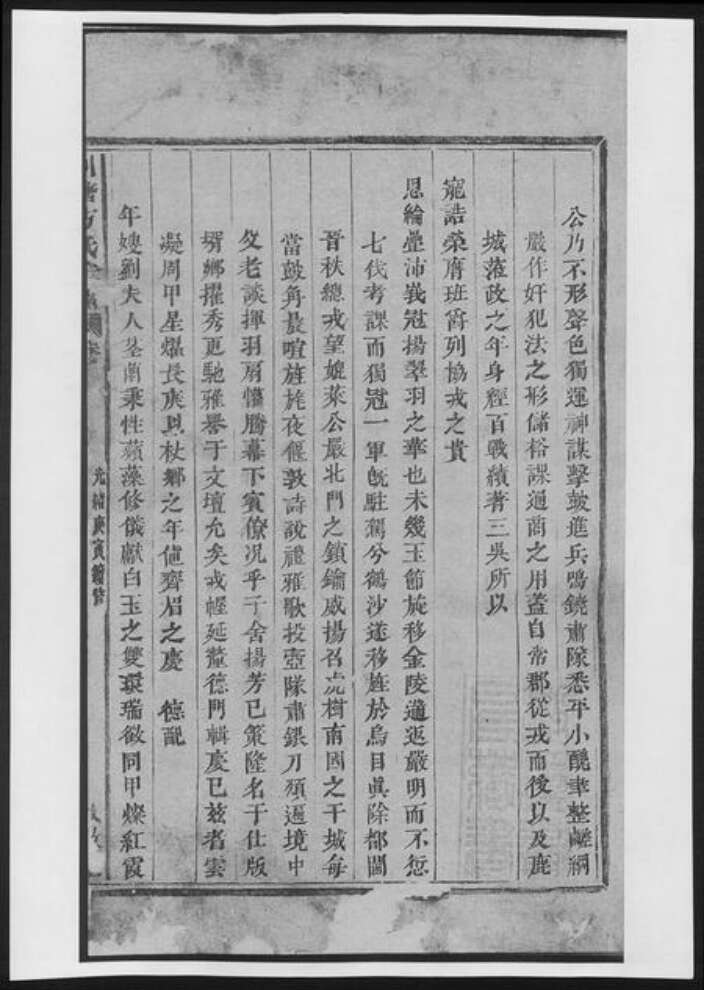 公乃不形聲色獨運神謀擊皷進兵鳴鐃肅隊悉平小醜聿整鹺綱
嚴作奸犯法之形儲裕課通商之用蓋自常郡從戎而後以及鹿
城蒞政之年身經百戰績著三吳所以
寵誥榮膺班爵列協戎之貴
恩綸疊沛峩冠揚翠羽之華也未幾玉節旋移金陵適返嚴明而不愆
七伐考課而獨冠一軍旣駐鴛兮鶴沙遂移旌於烏目眞除都閫
晉秩總戎望媲萊公嚴北門之鎖鑰威揚召虎樹南國之干城每
當鼓角晨喧旌旄夜偃敦詩說禮雅歌投壺隊肅銀刀頌遍境中
父老談揮羽扇懽騰幕下賓僚况乎子舍揚芳已策隆名于仕版
壻鄉擢秀更馳雅譽于文壇允矣戎幄延釐德門輯慶已兹者雲
凝周甲星燿長庚具杖鄉之年値齊眉之慶 德配
年嫂劉夫人荃蘭秉性蘋藻修儀獻白玉之雙環瑞欲同甲燦紅霞
光緒庚寅續修